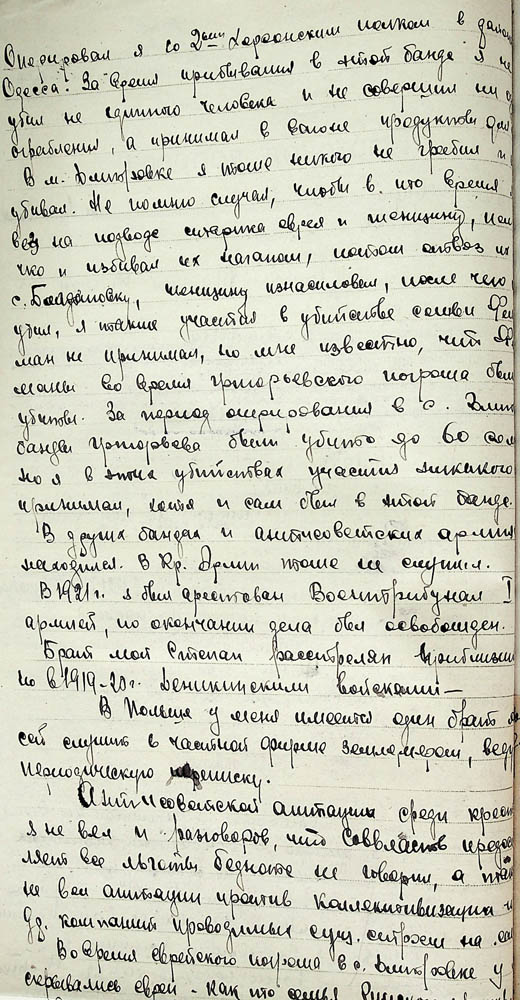 Оперировал я со 2ым Херсонским полком в
Одесса. За время прибывания в этой банде я не
убил не единого человека и не совершил ни
ограбления, а принимал в вагоне продуктов для
В м. Дмитровке я тоже никого не грабил и
убивал. Не помню случая, чтобы в это время
вез на подводе старика еврея и женщину,
и избивал их наганом, потом отвез их
с. Богдановку, женщину изнасиловал, после чего
убил, я также участия в убийстве семьи
ман не принимал, но мне известно, что
маны во время григорьевского погрома были
убиты. За период оперирования в с.
банды Григорьева были убито до 60
но я в этих убийствах участия никакого
принимал, хотя и сам был в этой банде.
В других бандах и антисоветских армиях
находился. В Кр. Армии тоже не служил.
В 1921 г. я был арестован Военттрибунал I
армией, по окончании дела был освобожден.
Брат мой Степан расстрелян
но в 1919-20 г. Деникинскими войсками —
В Польше у меня имеется один брат
сей служит в частной фирме землемером, веду
периодическую переписку.
Антисоветской агитации среди крест
я не вел и разговоров, что Соввласть предос
ляет все льготы бедноте не говорил, а так
не вел агитации против коллективизации и
др. компаний проводимых сущ. строем на
Во время еврейского погрома в с. Дмитровке у
скрывались евреи - как то семья